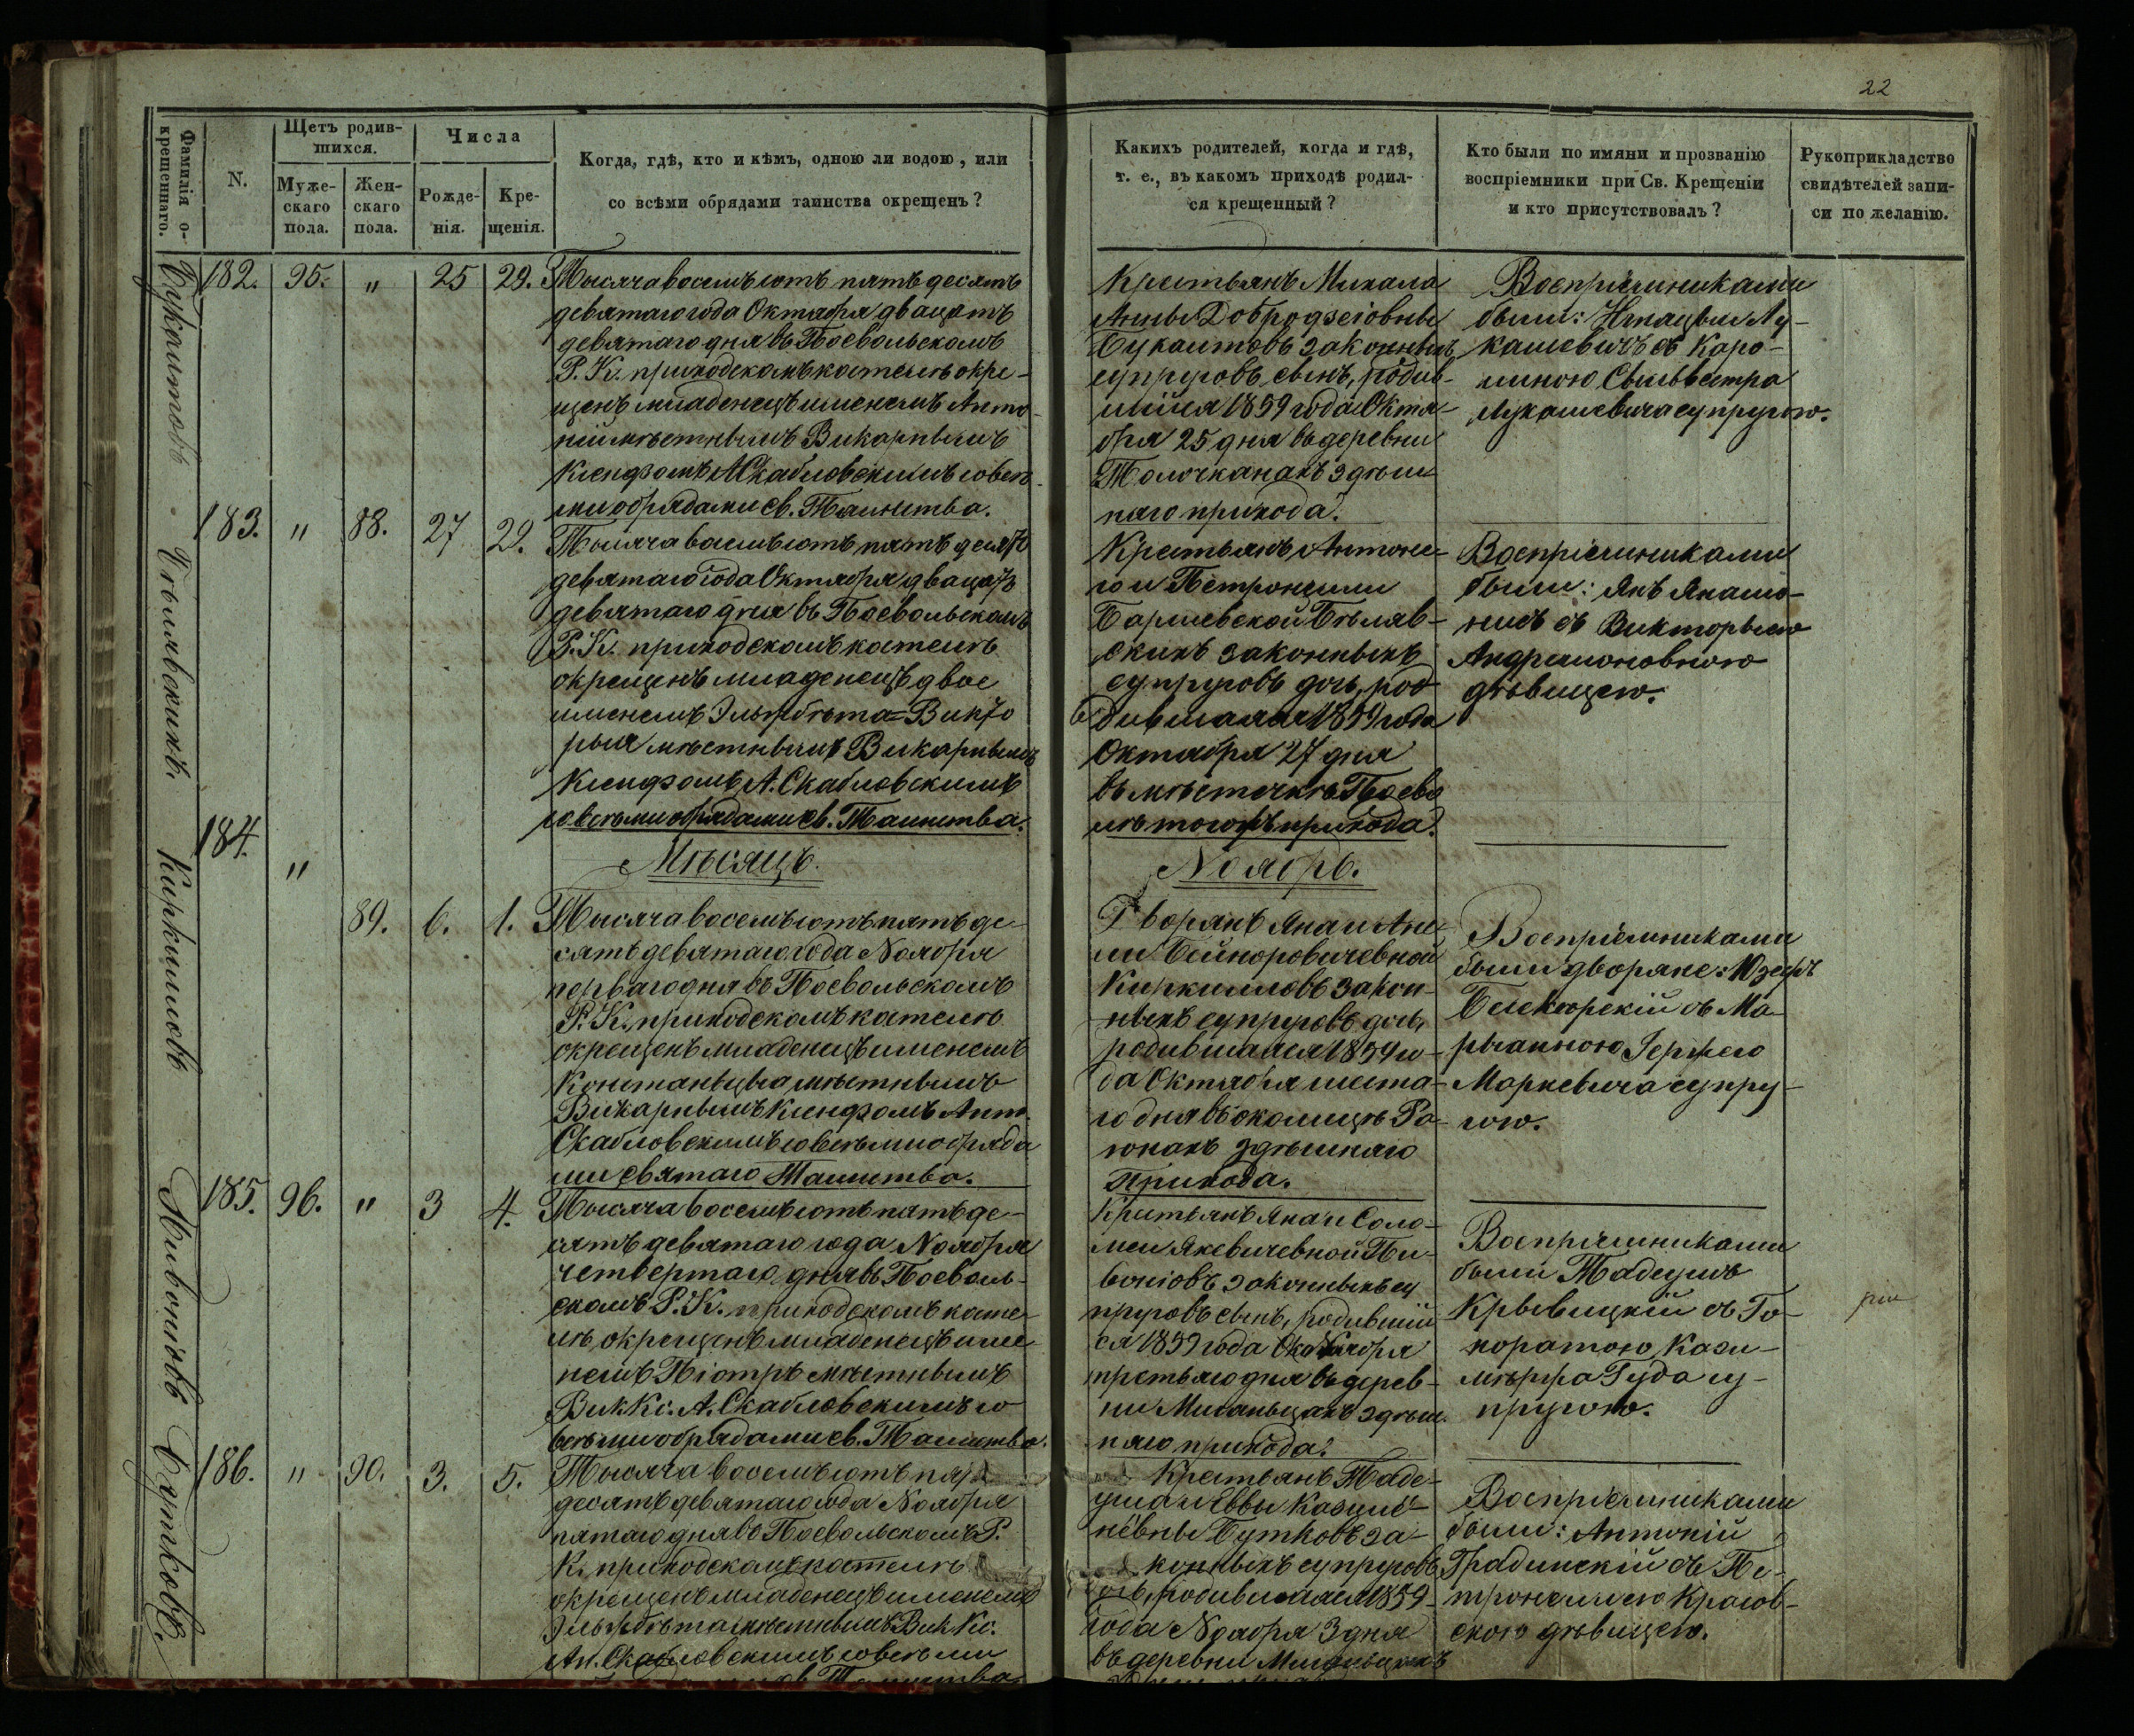 22
Фамилія о-
крещеннаго.
N.
Щетъ родив-
шихся.
Муже-
скаго
пола.
Жен-
скаго
пола.
Числа
Рожде-
нія.
Кре-
щенія.
Когда, гдѣ, кто и кѣмъ, одною ли водою, или
со всѣми обрядами таинства окрещенъ?
Каких родителей, когда и гдѣ,
т. е., въ какомъ приходѣ родил-
ся крещенный?
Кто были по имяни и прозванію
воспріемники при Св. Крещеніи
и кто присутствовалъ?
Рукоприкладство
свидѣтелей запи-
си по желанію.
Букаитовъ
182. 95. " 25 29.
Тысяча восемьсотъ пятьдесятъ
девятаго года Октября двацатъ
девятаго дня въ Поевольскомъ
Р. К. приходскомъ костелѣ окре-
щенъ младенецъ именемъ Анто-
ній мѣстнымъ Викарнымъ
Ксендзомъ А Скабловскимъ совсѣ-
ми обрядами св. Таинства.
Крестьянъ Михала
Анны Добродзеіовны
Букаитовъ законныхъ
супруговъ сынъ, родив-
шійся 1859 года Октя-
бря 25 дня въ деревни
Толочканахъ здѣш-
няго прихода.
Воспріемниками
были: Игнацы Лу-
кашевичъ съ Каро-
линою Сыльвестра
Лукашевича супругою.
Бѣлявскихъ.
183. " 88. 27 29.
Тысяча восемьсотъ пятьдесято
девятаго года Октября двацать
девятаго дня въ Поевольскомъ
Р. К. приходскомъ костелѣ
окрещенъ младенецъ двое
именемъ Эльжбѣта=Викто
рыя мѣстнымъ Викарнымъ
Ксендзомъ А. Скабловскимъ
совсѣми обрядами св. Таинства.
Крестьянъ Антоне-
го и Петронели
Барцевской Бѣляв-
скихъ законныхъ
супруговъ дочь, род
дившаяся 1859 года
Октября 27 дня
въ мѣстечкѣ Поево
лѣ тогожъ прихода.
Воспріемниками
были: Янъ
съ Викторыею
Андрелионовною
дѣвицею.
Мѣсяцъ.
Ноябрь.
Киркилловъ
184. " 89. 6. 1.
Тысяча восемьсотъ пятьде-
сятъ девятаго года Ноября
перваго дня въ Поевольскомъ
Р. К. приходскомъ костелѣ
окрещенъ младенецъ именемъ
Констанцыя мѣстнымъ
Викарнымъ Ксендзомъ Ант.
Скабловскимъ совсѣми обряда
ми святаго Таинства.
Дворянъ Яна и Ане-
ли Бейноровичевной
Киркилловъ закон-
ныхъ супруговъ дочь,
родившаяся 1859 го-
да Октября шеста-
го дня въ околицѣ Ро-
юнахъ здѣшняго
Прихода.
Воспріемниками
были дворяне: Юзефъ
съ Ма-
рыанною Гержего
Маркевича супру-
гою.
Пивоніовъ
185. 96. " 3 4.
Тысяча восемьсотъ пятьде-
сятъ девятаго года Ноября
четвертаго дня въ Поеволь-
скомъ Р. К. приходскомъ косте-
лѣ окрещенъ младенецъ име-
немъ Піотръ мѣстнымъ
Вик Кс. А. Скабловскимъ со
всѣми обрядами св. Таинства.
Крестьянъ Яна и Соло-
меи Якевичевной Пи-
воніовъ законныхъ су
пруговъ сынъ, родившій
ся 1859 года Ноября
третьяго дня въ дерев-
ни здѣш-
няго прихода.
Воспріемниками
были Тадеушъ
Крывицкій съ Го-
норатою Кази-
мѣржа Гуда су-
пругою.
Бутковъ.
186. " 90. 3. 5.
Тысяча восемьсотъ пять
десятъ девятаго года Ноября
пятаго дня въ Поевольскомъ Р.
К. приходскомъ костелѣ
окрещенъ младенецъ именемъ
Эльжбѣта мѣстнымъ Вик Кс.
Ан. Скабловскимъ совсѣми
св. Таинства
Крестьянъ Таде-
уша и Еввы Казуле-
нёвны Бутковъ за-
конныхъ супруговъ
дочь, родившаяся 1859
года Ноября 3 дня
въ деревни
Воспріемниками
были: Антоній
Градинскій съ Пе-
тронеллею Красов-
скою дѣвицею.